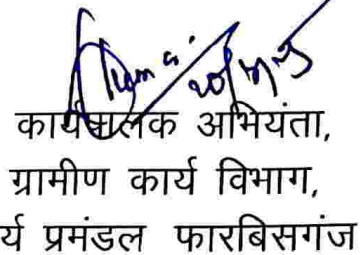 कार्यपालक अभियंता,
ग्रामीण कार्य विभाग,
र्य प्रमंडल फारबिसगंज